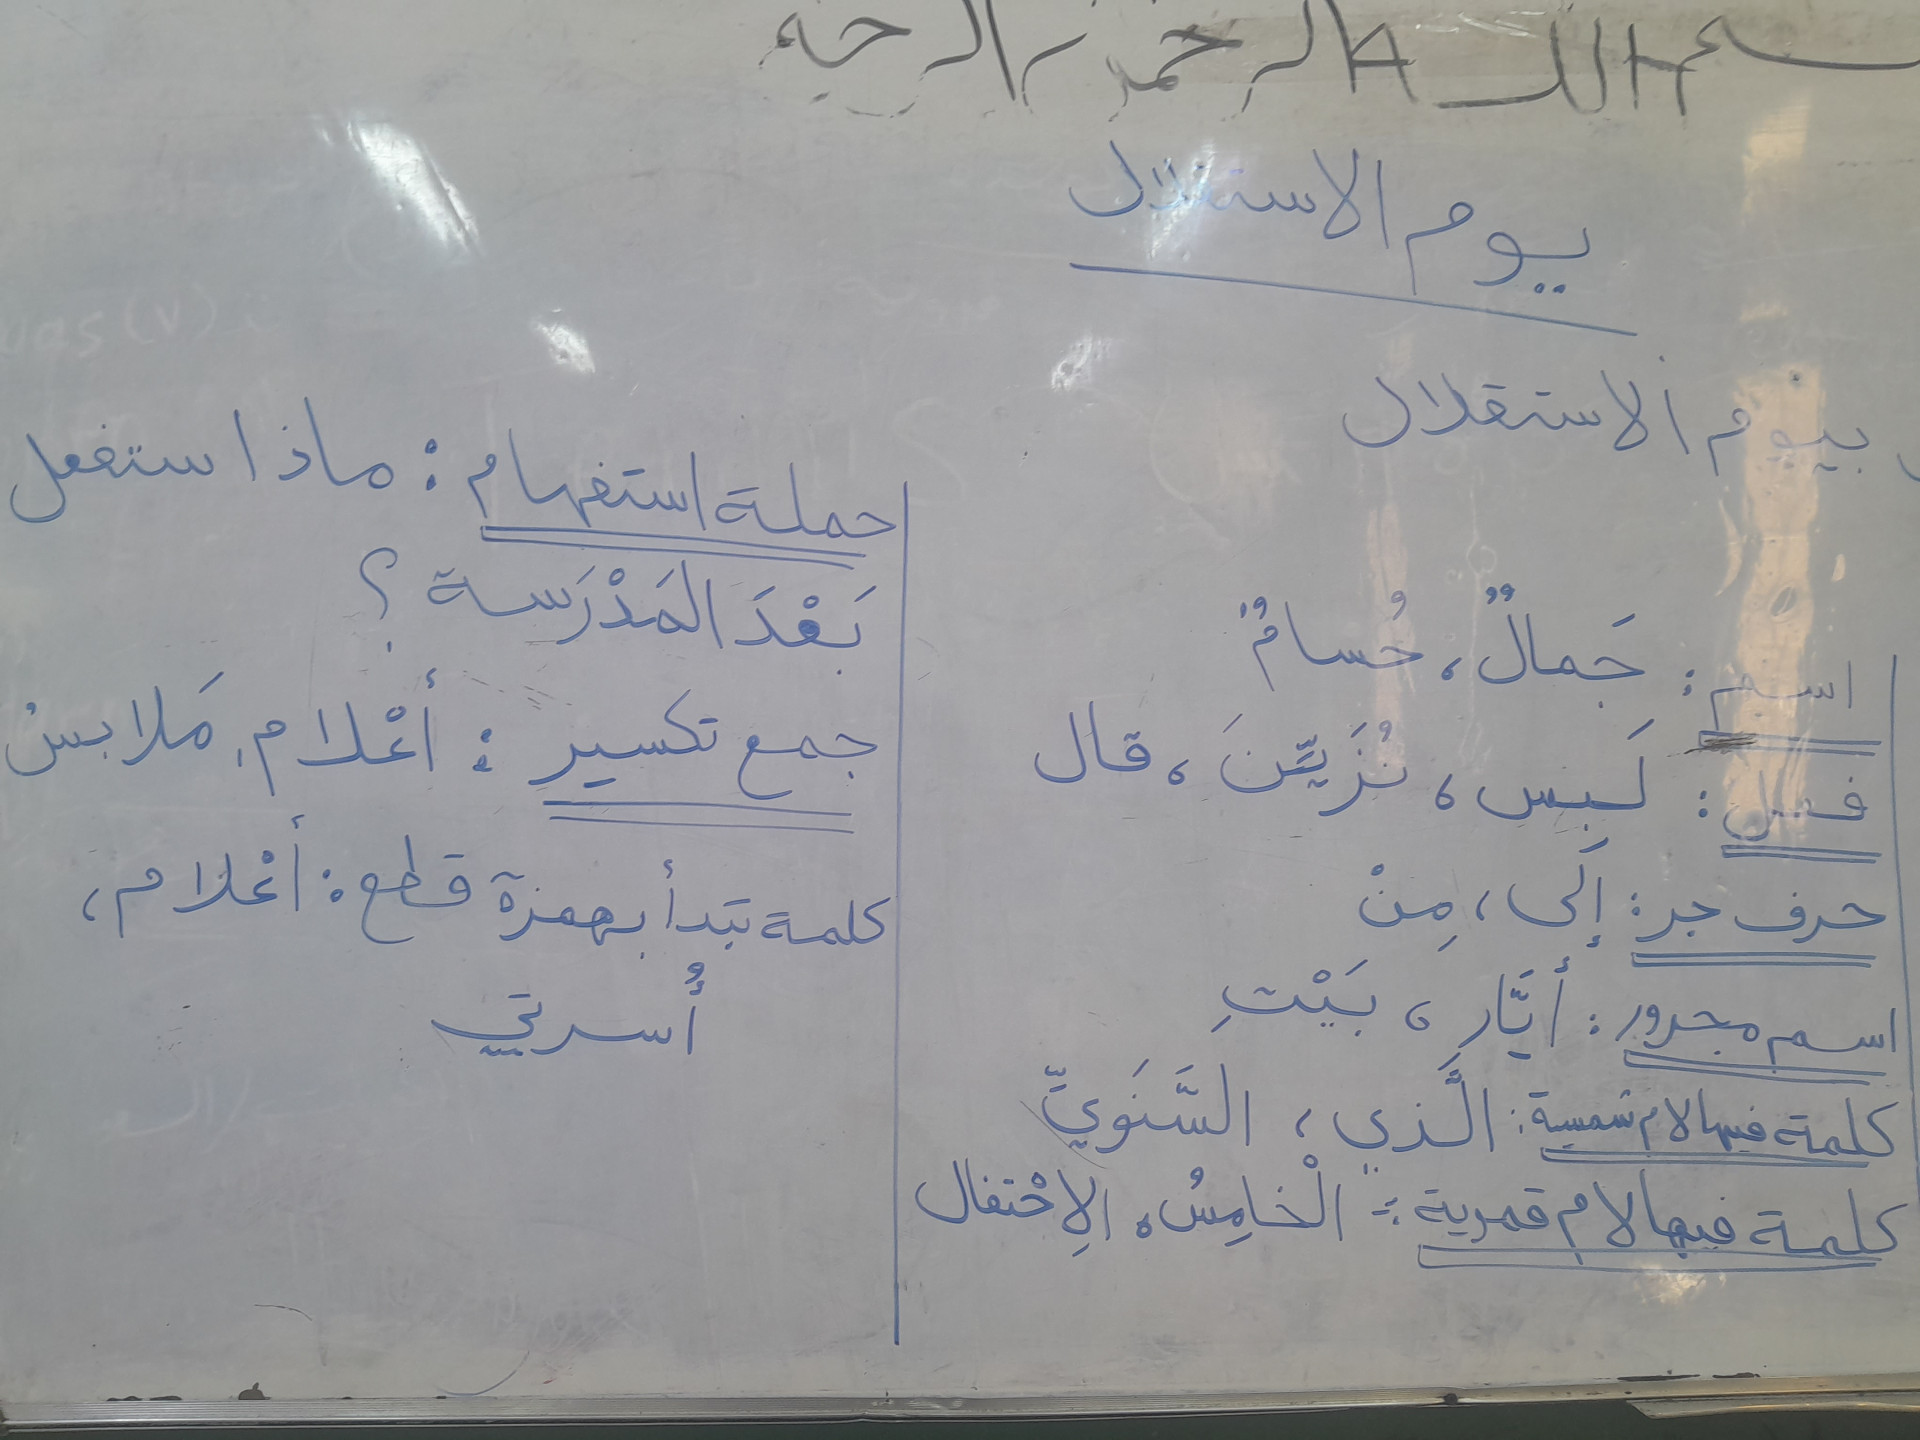 بسم الله الرحمن الرحيم
يوم الاستقلال
بيوم الاستقلال
اسم : جَمالٌ ، حُسامٌ
فعل : لَبِس ، نُزَيِّنَ ، قال
حرف جر : إلَى ، مِنْ
اسم مجرور : أيَّار ، بَيْتِ
كلمة فيها لام شمسية : الَّذي ، السَّنَويِّ
كلمة فيها لام قمرية : الْخامِسُ ، الاِحْتفال
جملة استفهام : ماذا ستفعل
بَعْدَ المَدْرَسة ؟
جمع تكسير : أعْلام ، مَلابسُ
كلمة تبدأ بهمزة قطع : أعْلام ،
أُسرتي